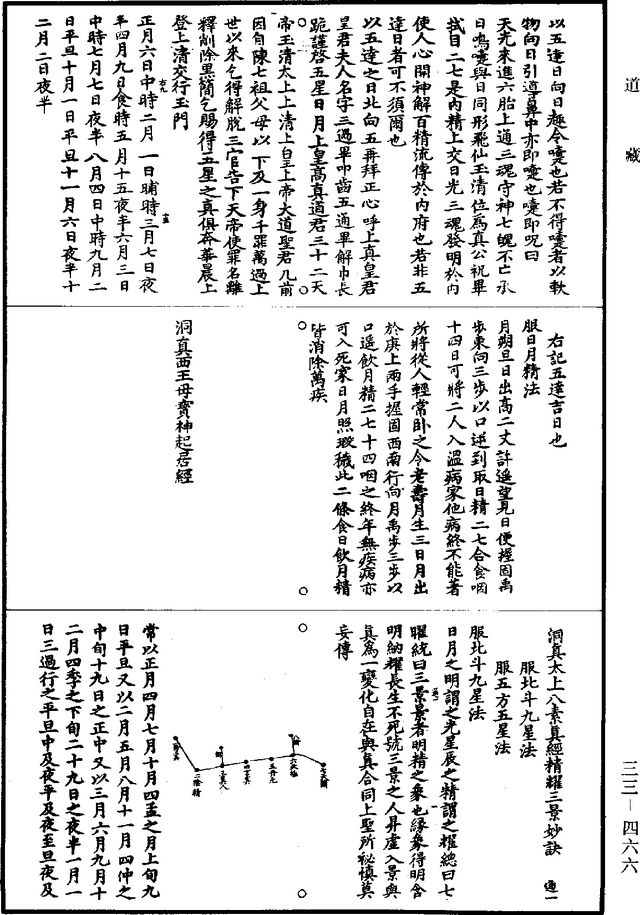 道藏
三三—四六六
以五達日向日趍令嚏也若不得嚏者以軟
物向日引導鼻中亦即嚏也嚏即呪曰
天光來進六胎上通三魂守神七魄不亡承
日鳴嚏與日同形飛仙玉清位為真公祝畢
拭目二七是內精上交日光三魂發明於內
使人心開神解百精流傳於內府也若非五
達日者可不須爾也
以五達之日北向五再拜正心呼上真皇君
皇君夫人名字三過畢叩齒五通畢解巾長
跪謹啓五星日月上皇高真道君三十二天
帝玉清太上上清上皇上帝大道聖君几前
因自陳七祖父母以下及一身千罪萬過上
世以來乞得解脫三官告下天帝使罪名離
釋削除黑簡乞賜得五星之真俱奔華晨上
登上清交行玉門
正月六日中時二月一日晡時三月七日夜
半四月九日食時五月十五夜半六月三日
中時七月七日夜半八月四日中時九月二
日平旦十月一日平旦十一月六日夜半十
二月二日夜半
右記五達吉日也
服日月精法
月朔旦日出高二丈許遥望見日便握固禹
步東向三步以口逆到取日精二七合食咽
十四日可將二人入溫病家他病終不能著
所將從人輕常卧之令老壽月生三日月出
於庚上兩手握固西南行向月禹步三步以
口遥飲月精二七十四咽之終年無疾病亦
可入死家日月照瑕穢此二條食日飲月精
皆消除萬疾
洞真西王母寶神起居經
洞真太上八素真經精耀三景妙訣 通一
服北斗九星法
服五方五星法
服北斗九星法
日月之明謂之光星辰之精謂之耀總曰七
曜統曰三景景者明精之象也緣象得明含
明納耀長生不死號三景之人昇虛入景與
真為一變化自在與真合同上聖所祕慎莫
妄傳
常以正月四月七月十月四孟之月上旬九
日平旦又以二月五月八月十一月四仲之
中旬十九日之正中又以三月六月九月十
二月四季之下旬二十九日之夜半一月一
日三過行之平旦中及夜半及夜至旦夜及